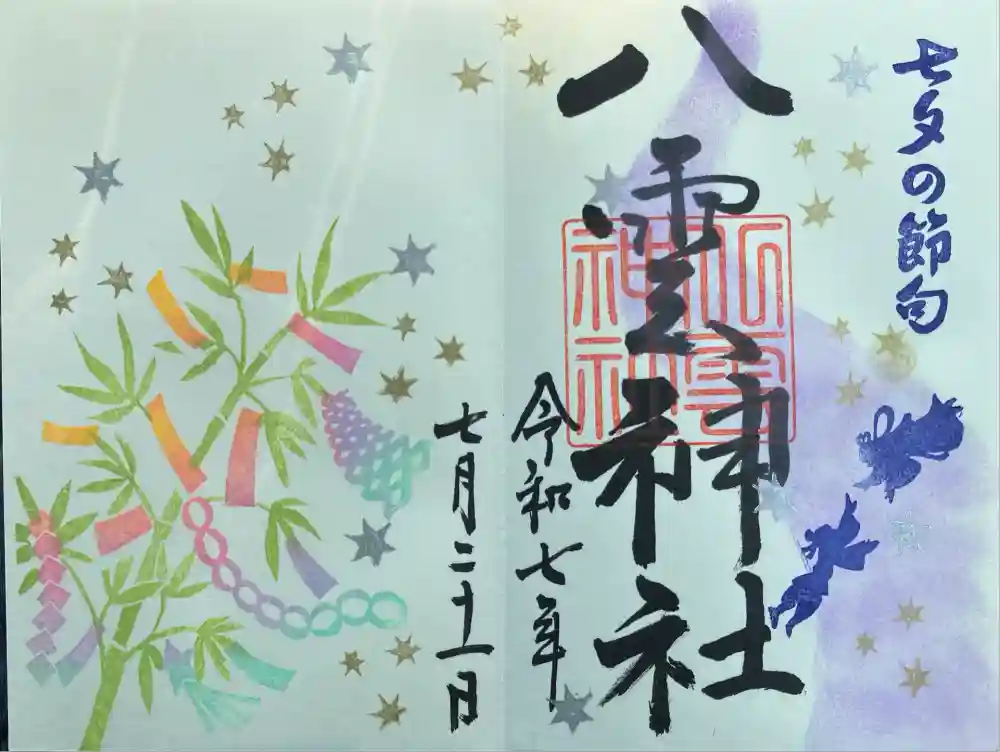 七夕の節句
八雲神社
八雲
神社
令和七年
七月二十一日